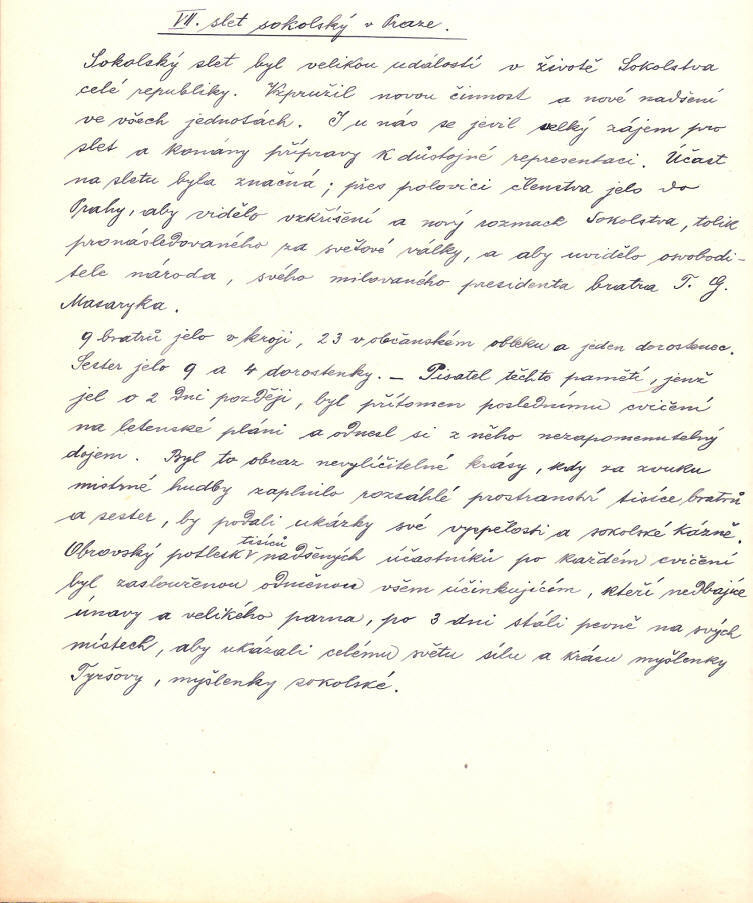 VII. slet sokolský v Praze.
Sokolský slet byl velikou událostí v životě Sokolstva
celé republiky. Vzpružil novou činnost a nové nadšení
ve všech jednotách. I u nás se jevil velký zájem pro
slet a konány přípravy k důstojné representaci. Účast
na sletu byla značná; přes polovici členstva jelo do
Prahy, aby vidělo vzkříšení a nový rozmach Sokolstva, tolik
pronásledovaného za světové války, a aby uvidělo osvobodi-
tele národa, svého milovaného presidenta bratra T. G.
Masaryka.
9 bratrů jelo v kroji, 23 v občanském obleku a jeden dorostenec.
Sester jelo 9 a 4 dorostenky. – Pisatel těchto pamětí, jenž
jel o 2 dni později, byl přítomen poslednímu cvičení
na letenské pláni a odnesl si z něho nezapomenutelný
dojem. Byl to obraz nevylíčitelné krásy, kdy za zvuku
mistrné hudby zaplnilo rozsáhlé prostranství tisíce bratrů
a sester, by podali ukázky své vyspělosti a sokolské kázně.
Obrovský potlesk tisíců nadšených účastníků po každém cvičení
byl zaslouženou odměnou všem účinkujícím, kteří nedbajíce
únavy a velikého parna, po 3 dni stáli pevně na svých
místech, aby ukázali celému světu sílu a krásu myšlenky
Tyršovy, myšlenky sokolské.